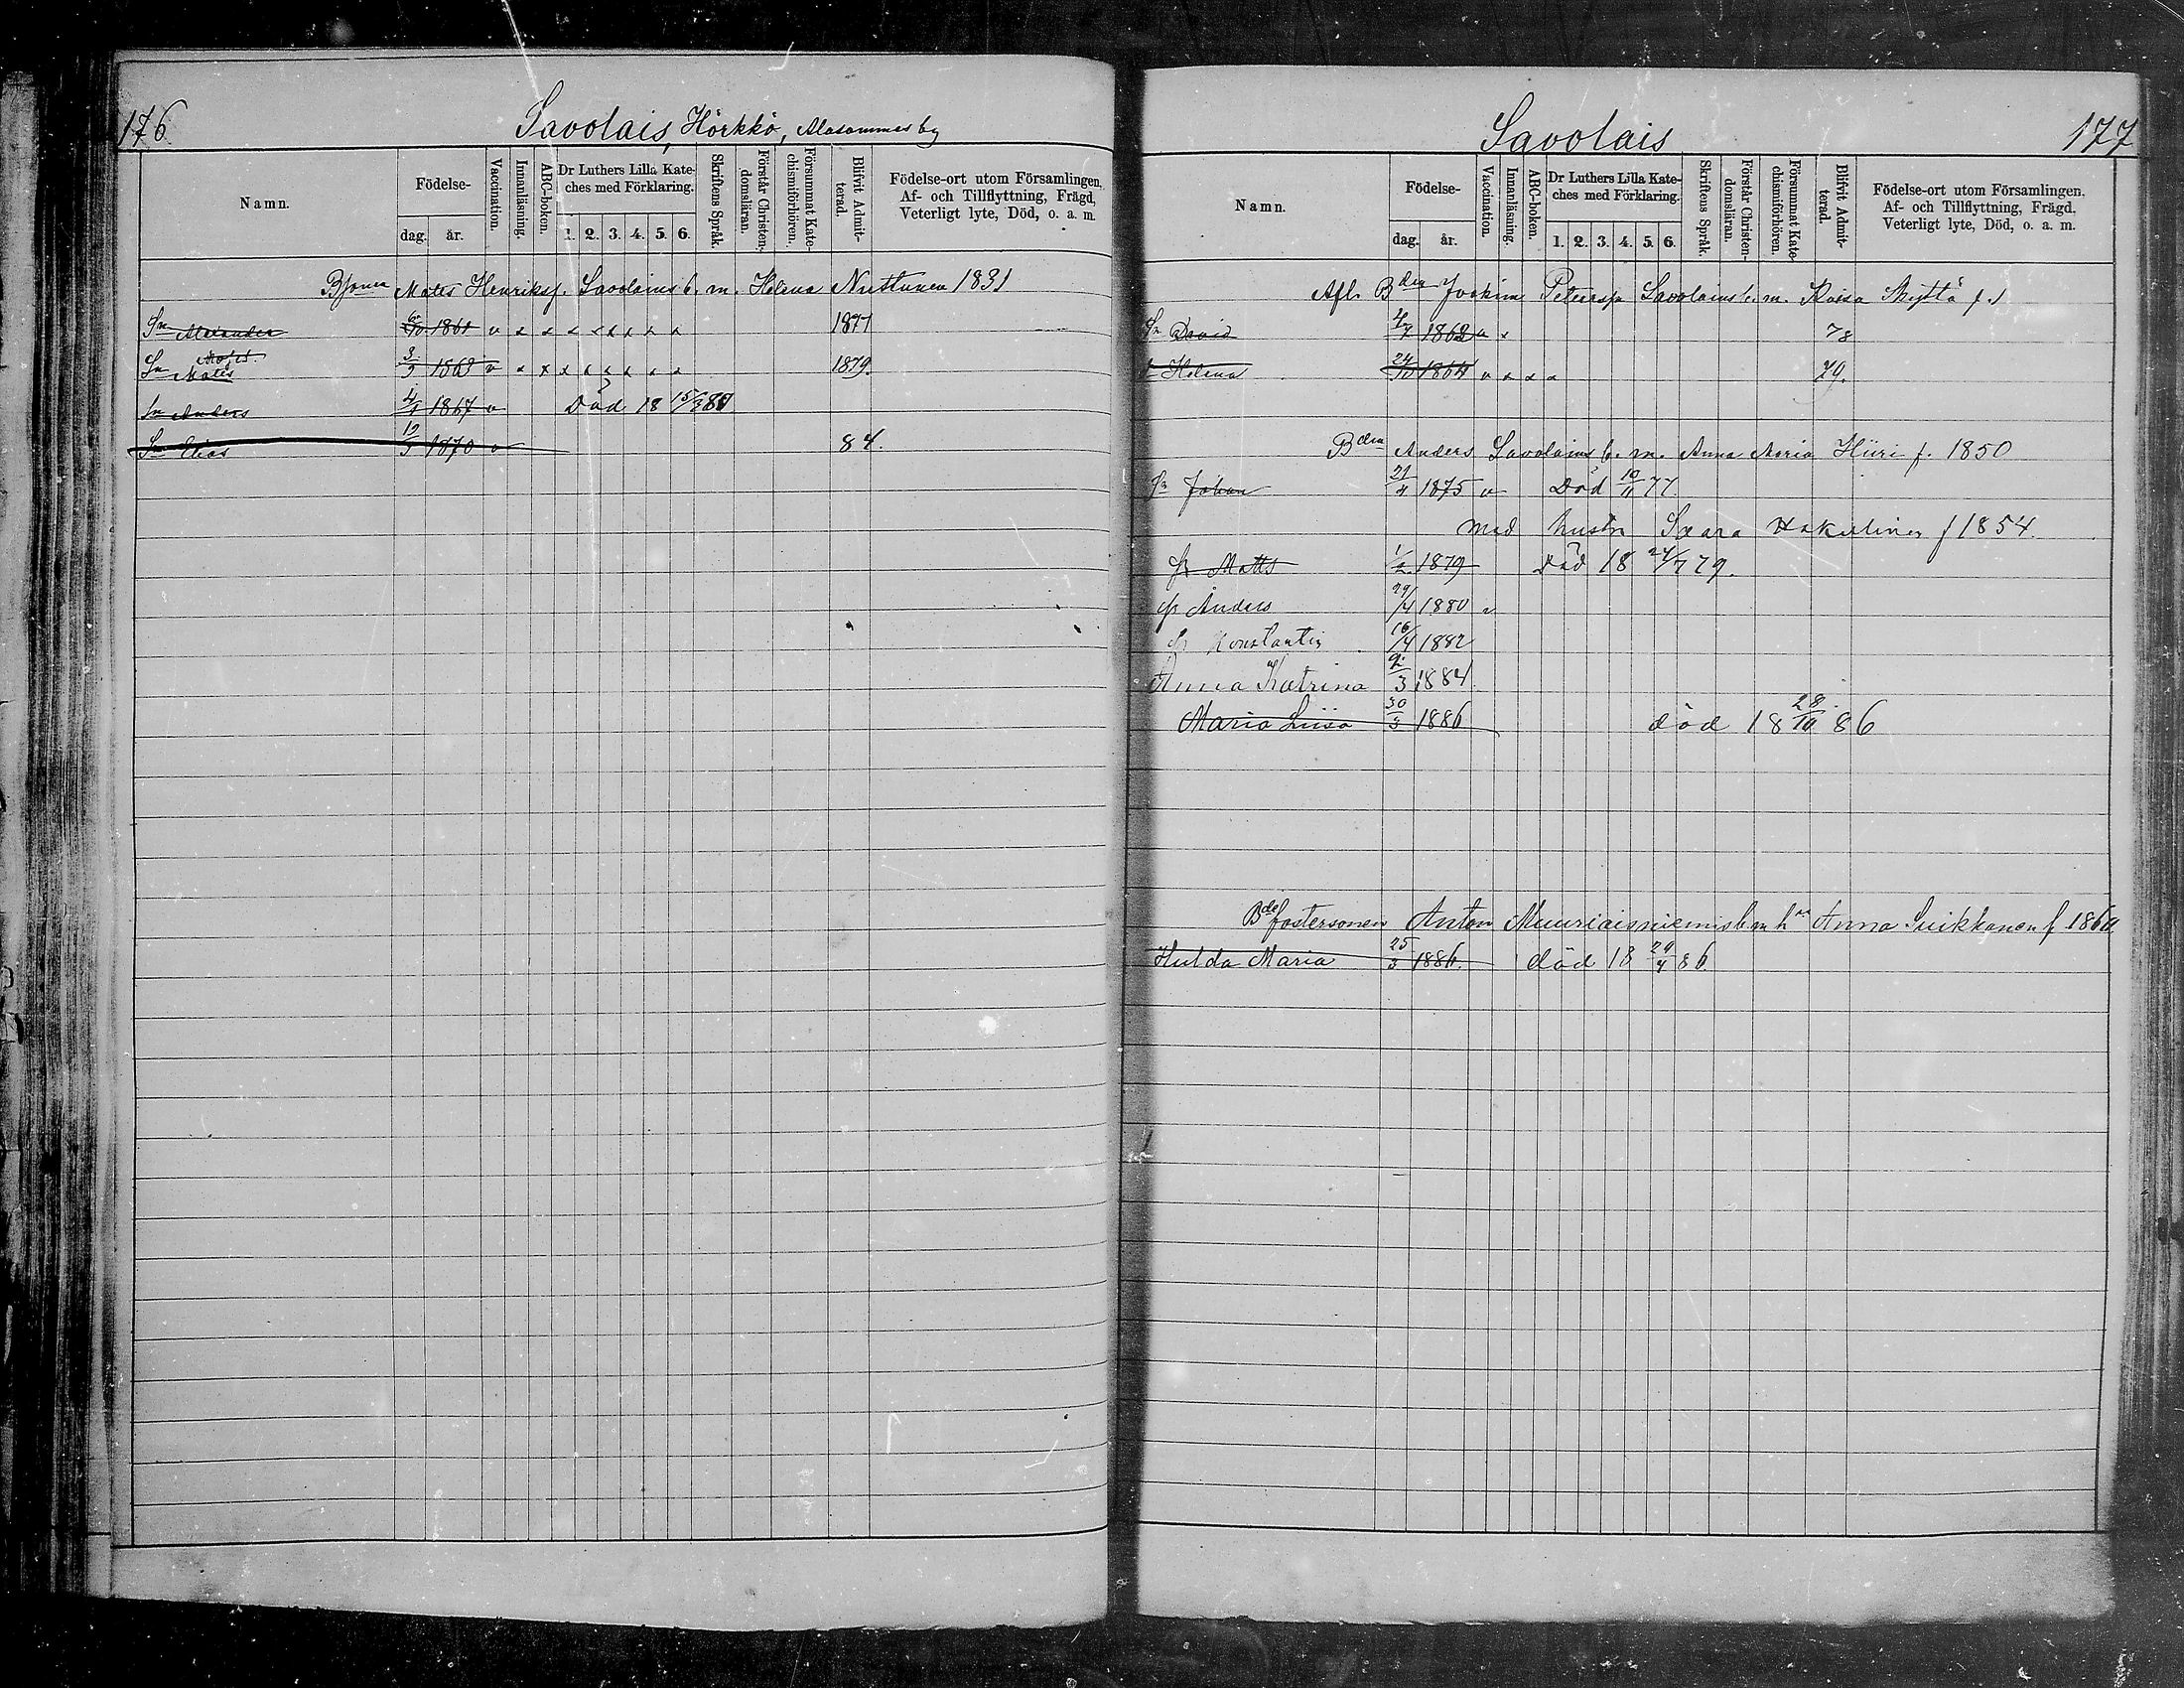 176.
Savolais, Hörkkö, Alasommesby
Namn.
Födelse-
dag. år.
Vaccination.
Innanläsning.
ABC-boken.
Dr Luthers Lilla Kate-
ches med Förklaring.
1. 2. 3. 4. 5. 6.
Skriftens Språk.
Förstår Christen-
domsläran.
Försummat Kate-
chismiförhören.
Blifvit Admit-
terad.
Födelse-ort utom Församlingen,
Af- och Tillflyttning, Frägd,
Veterligt lyte, Död, o. a. m.
Mates Henriksf. Savolains b. m. Helena Nuttunen 1831
Sn Alexander 1861 v x x x x x x x x 1877
Sn Mates 3/3 1863 v x x x x x x x x 1879.
Sn Anders 1867 v Död 18 15/3 80
Sn Elias 19/3 1870 v 84.
Savolais
177
Namn.
Födelse-
dag. år.
Vaccination.
Innanläsning.
ABC-boken.
Dr Luthers Lilla Kate-
ches med Förklaring.
1. 2. 3. 4. 5. 6.
Skriftens Språk.
Förstår Christen-
domsläran.
Försummat Kate-
chismiförhören.
Blifvit Admit-
terad.
Födelse-ort utom Församlingen,
Af- och Tillflyttning, Frägd,
Veterligt lyte, Död, o. a. m.
Afl. Bden Jockim Peterssn Savolains b. m. Kaisa Skyttä f. d
Sn David 4/7 1862 v x 78
Helena 24/10 1864 v x x x 79.
Bden Anders Savolains b. m. Anna Maria Hiiri f. 1850
Sn Johan 21/4 1875 v Död 10/11 77.
med hustr Saara Hakulinen f 1854.
Sn Matts 1/2 1879 död 18 24/7 79.
Sn Anders 29/4 1880 v
Sn Konstantin 16/4 1882
Anna Katrina 9/3 1884.
Maria Liisa 30/3 1886 död 18 28/10 86
Bde fostersonen Anton Muuriaisniemis b m hn Anna Suikkanen f 1860
Hulda Maria 25/3 1886. död 18 29/4 86.